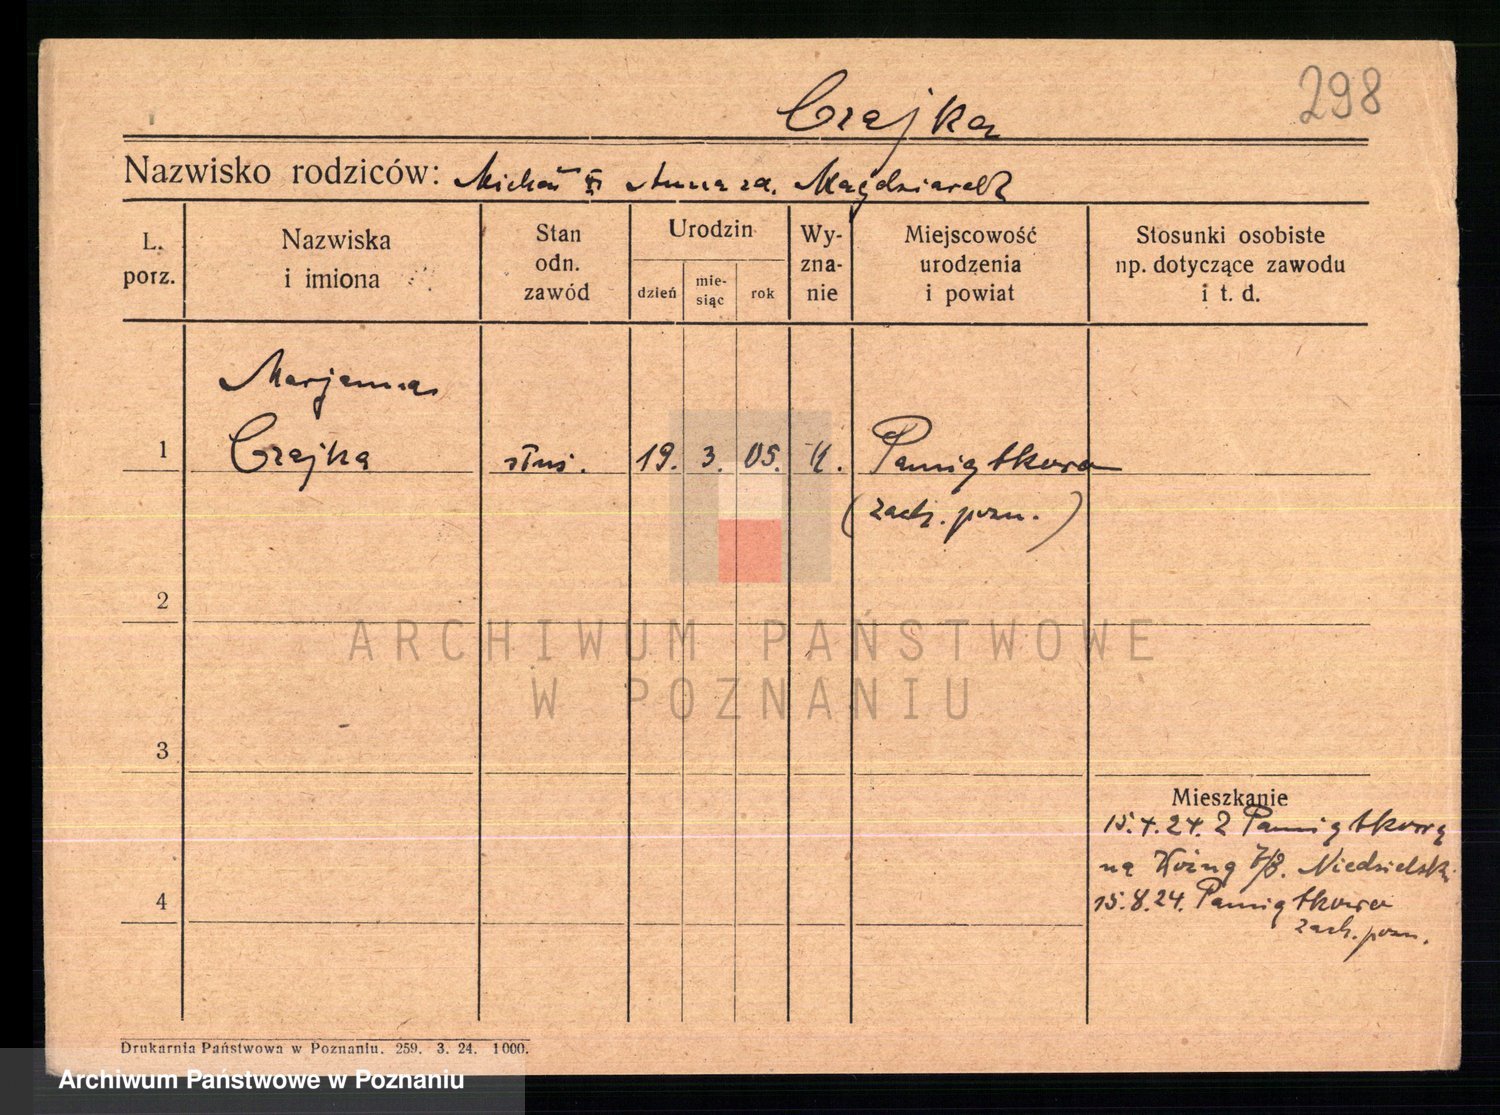 298
Czajka
Nazwisko rodziców: Michał i Anna zd. Magdziarek
L. porz.
Nazwiska i imiona
Stan odn. zawód
Urodzin
dzień
mie-
siąc
rok
Wy-
zna-
nie
Miejscowość
urodzenia
i powiat
Stosunki osobiste
np. dotyczące zawodu
i t. d.
Marjanna
1 Czajka służ. 19. 3. 05. k. Pamiątkowo
(zach. pozn.)
2
3
ARCHIWUM PAŃSTWOWE
W POZNANIU
Mieszkanie
15.4.24. z Pamiątkowa
na 7/8. Niedzielski
4
15.8.24. Pamiątkowo
zach. pozn.
Drukarnia Państwowa w Poznaniu. 259. 3. 24. 1000.
Archiwum Państwowe w Poznaniu